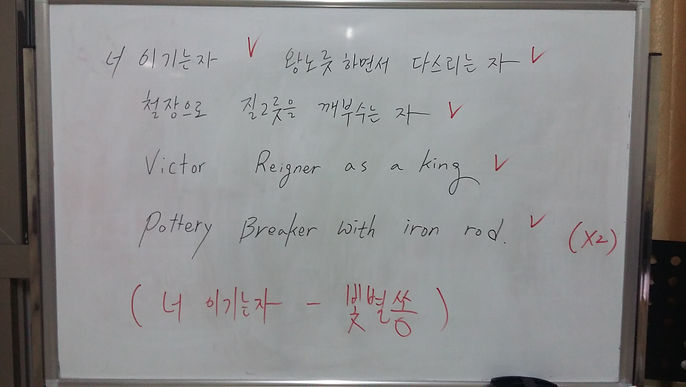 너 이기는자 ✓ 왕노릇 하면서 다스리는 자 ✓
철장으로 질그릇을 깨부수는 자 ✓
Victor Reigner as a king ✓
Pottery Breaker with iron rod. ✓ (X2)
( 너 이기는자 - 빛별쏭 )